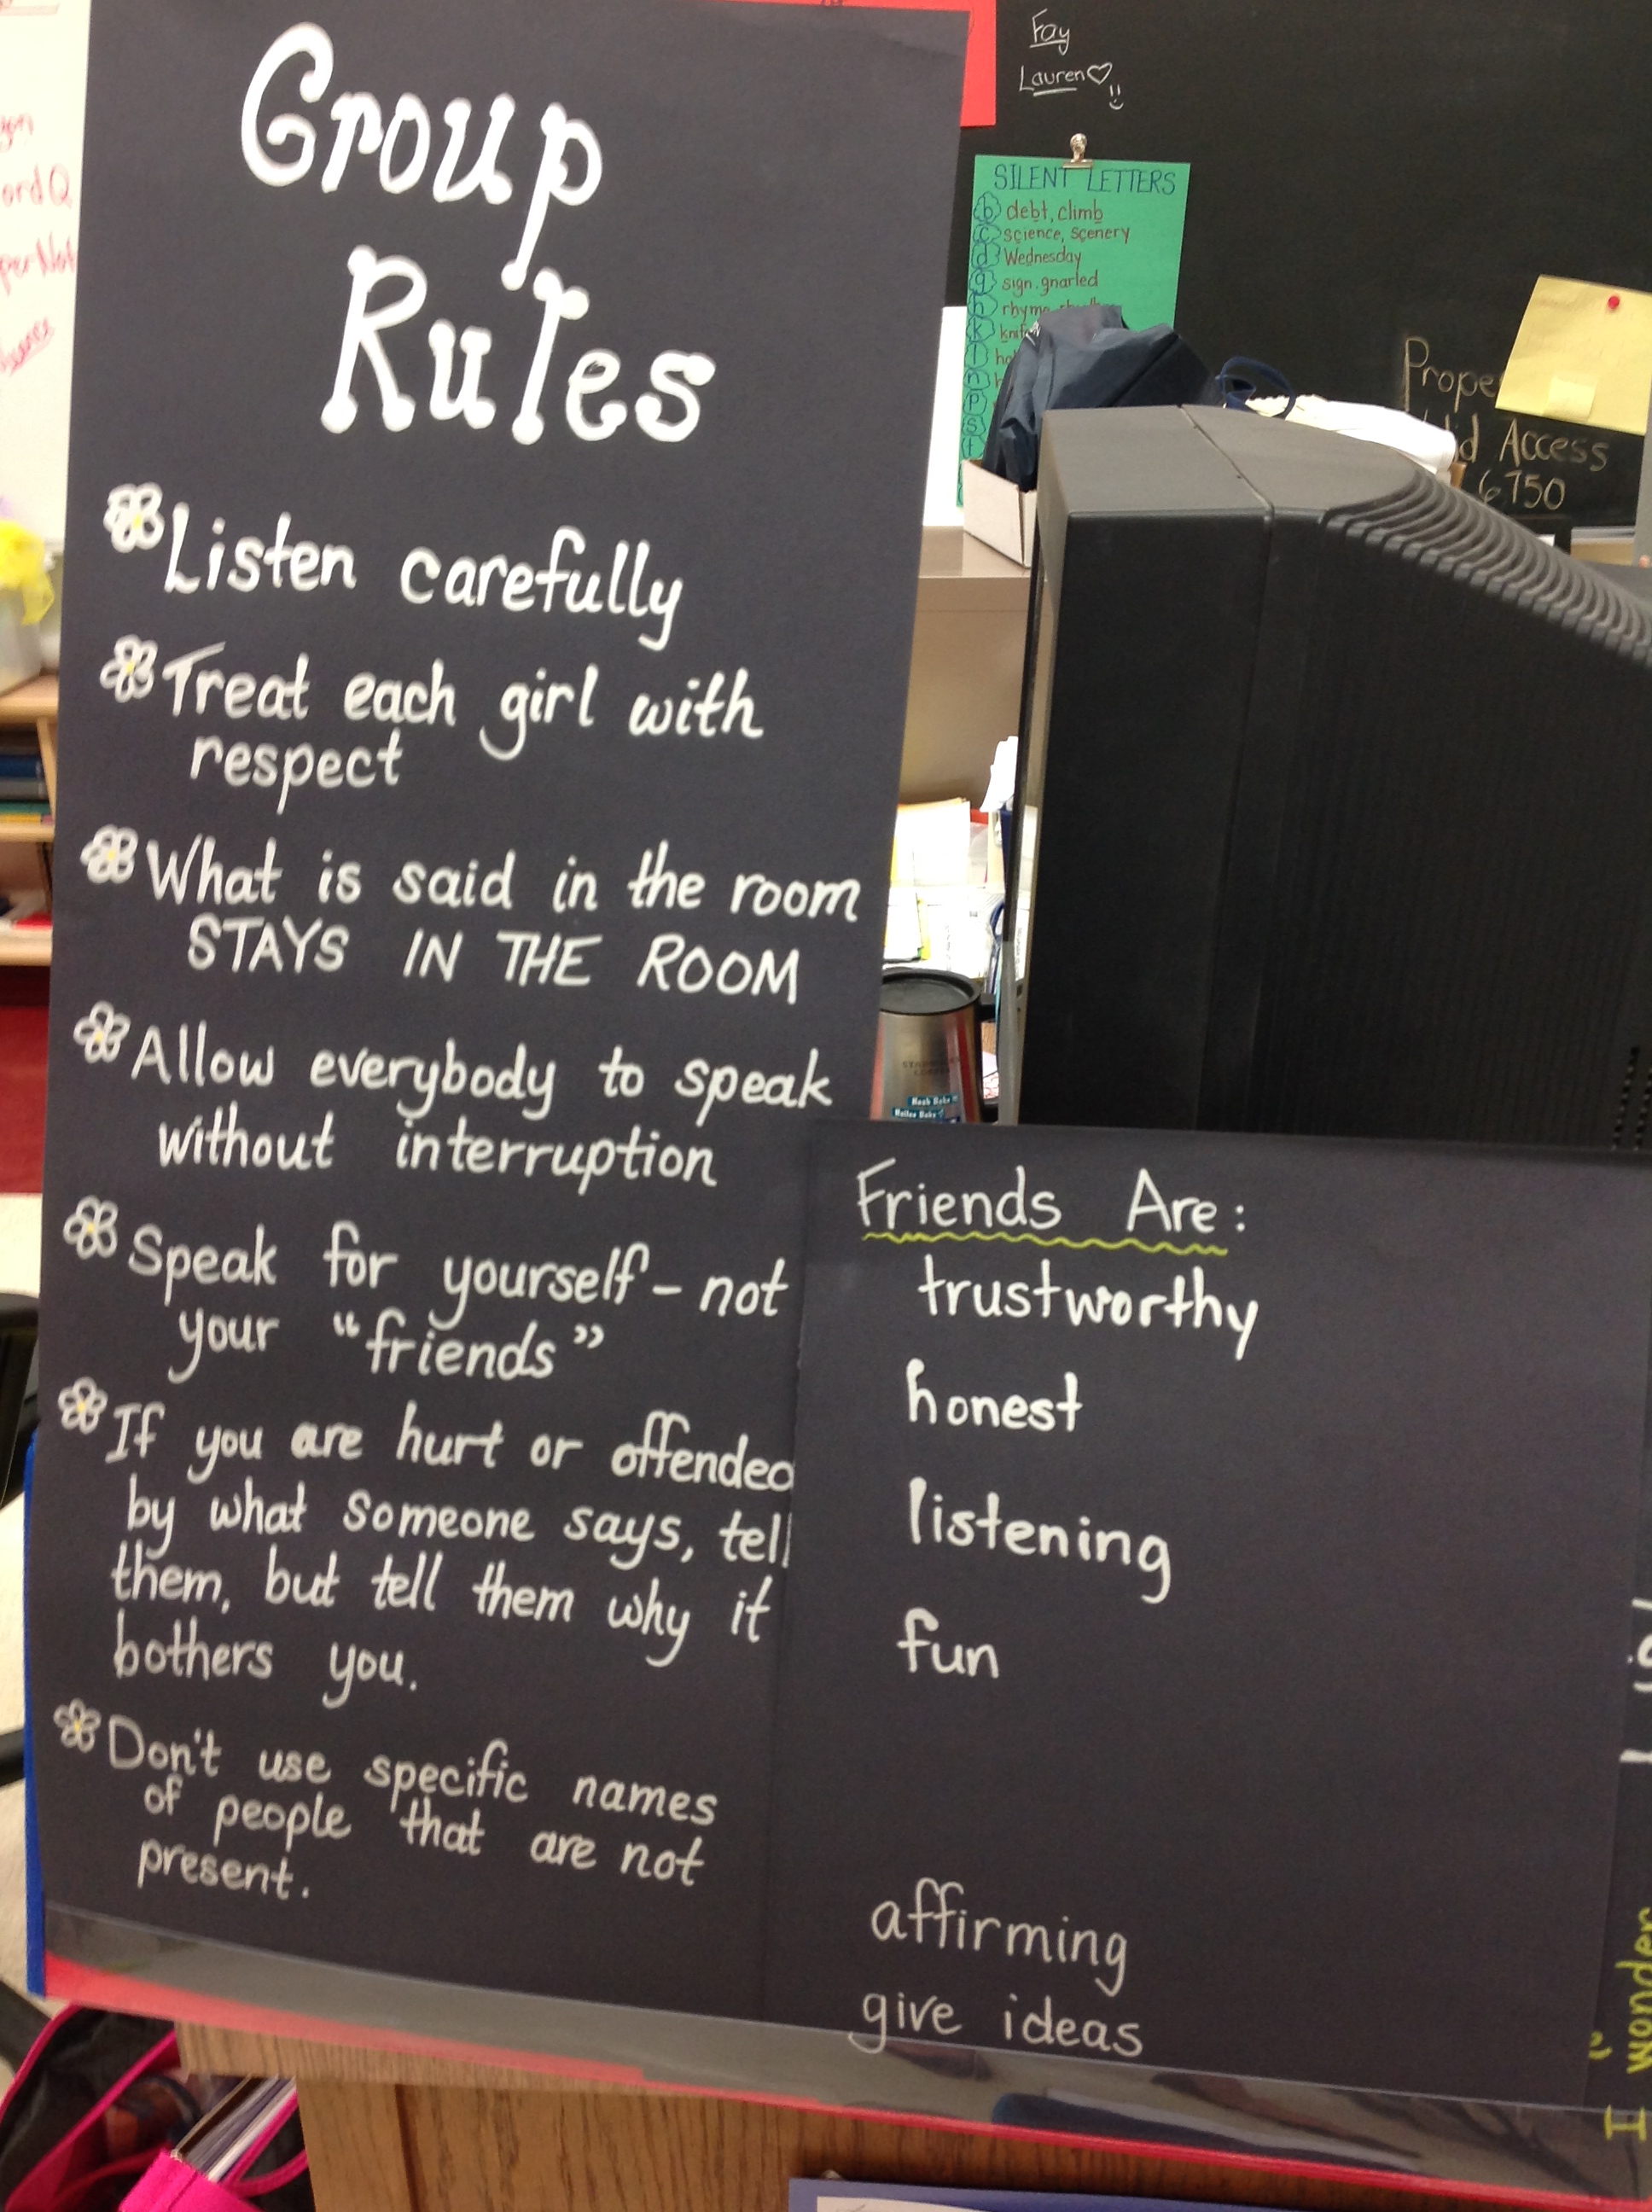 Group
Rules
Listen carefully
Treat each girl with
respect
What is said in the room
STAYS IN THE ROOM
Allow everybody to speak
without interruption
Speak for yourself - not
your "friends"
If you are hurt or offended
by what someone says, tell
them, but tell them why it
bothers you.
Don't use specific names
of people that are not
present.
Friends Are:
trustworthy
honest
listening
fun
affirming
give ideas
I wonder
Fay
Lauren♡
SILENT LETTERS
b debt, climb
c science, scenery
d Wednesday
g sign. gnarled
h rhyme
k
l
n
p
s
t
Access
6750